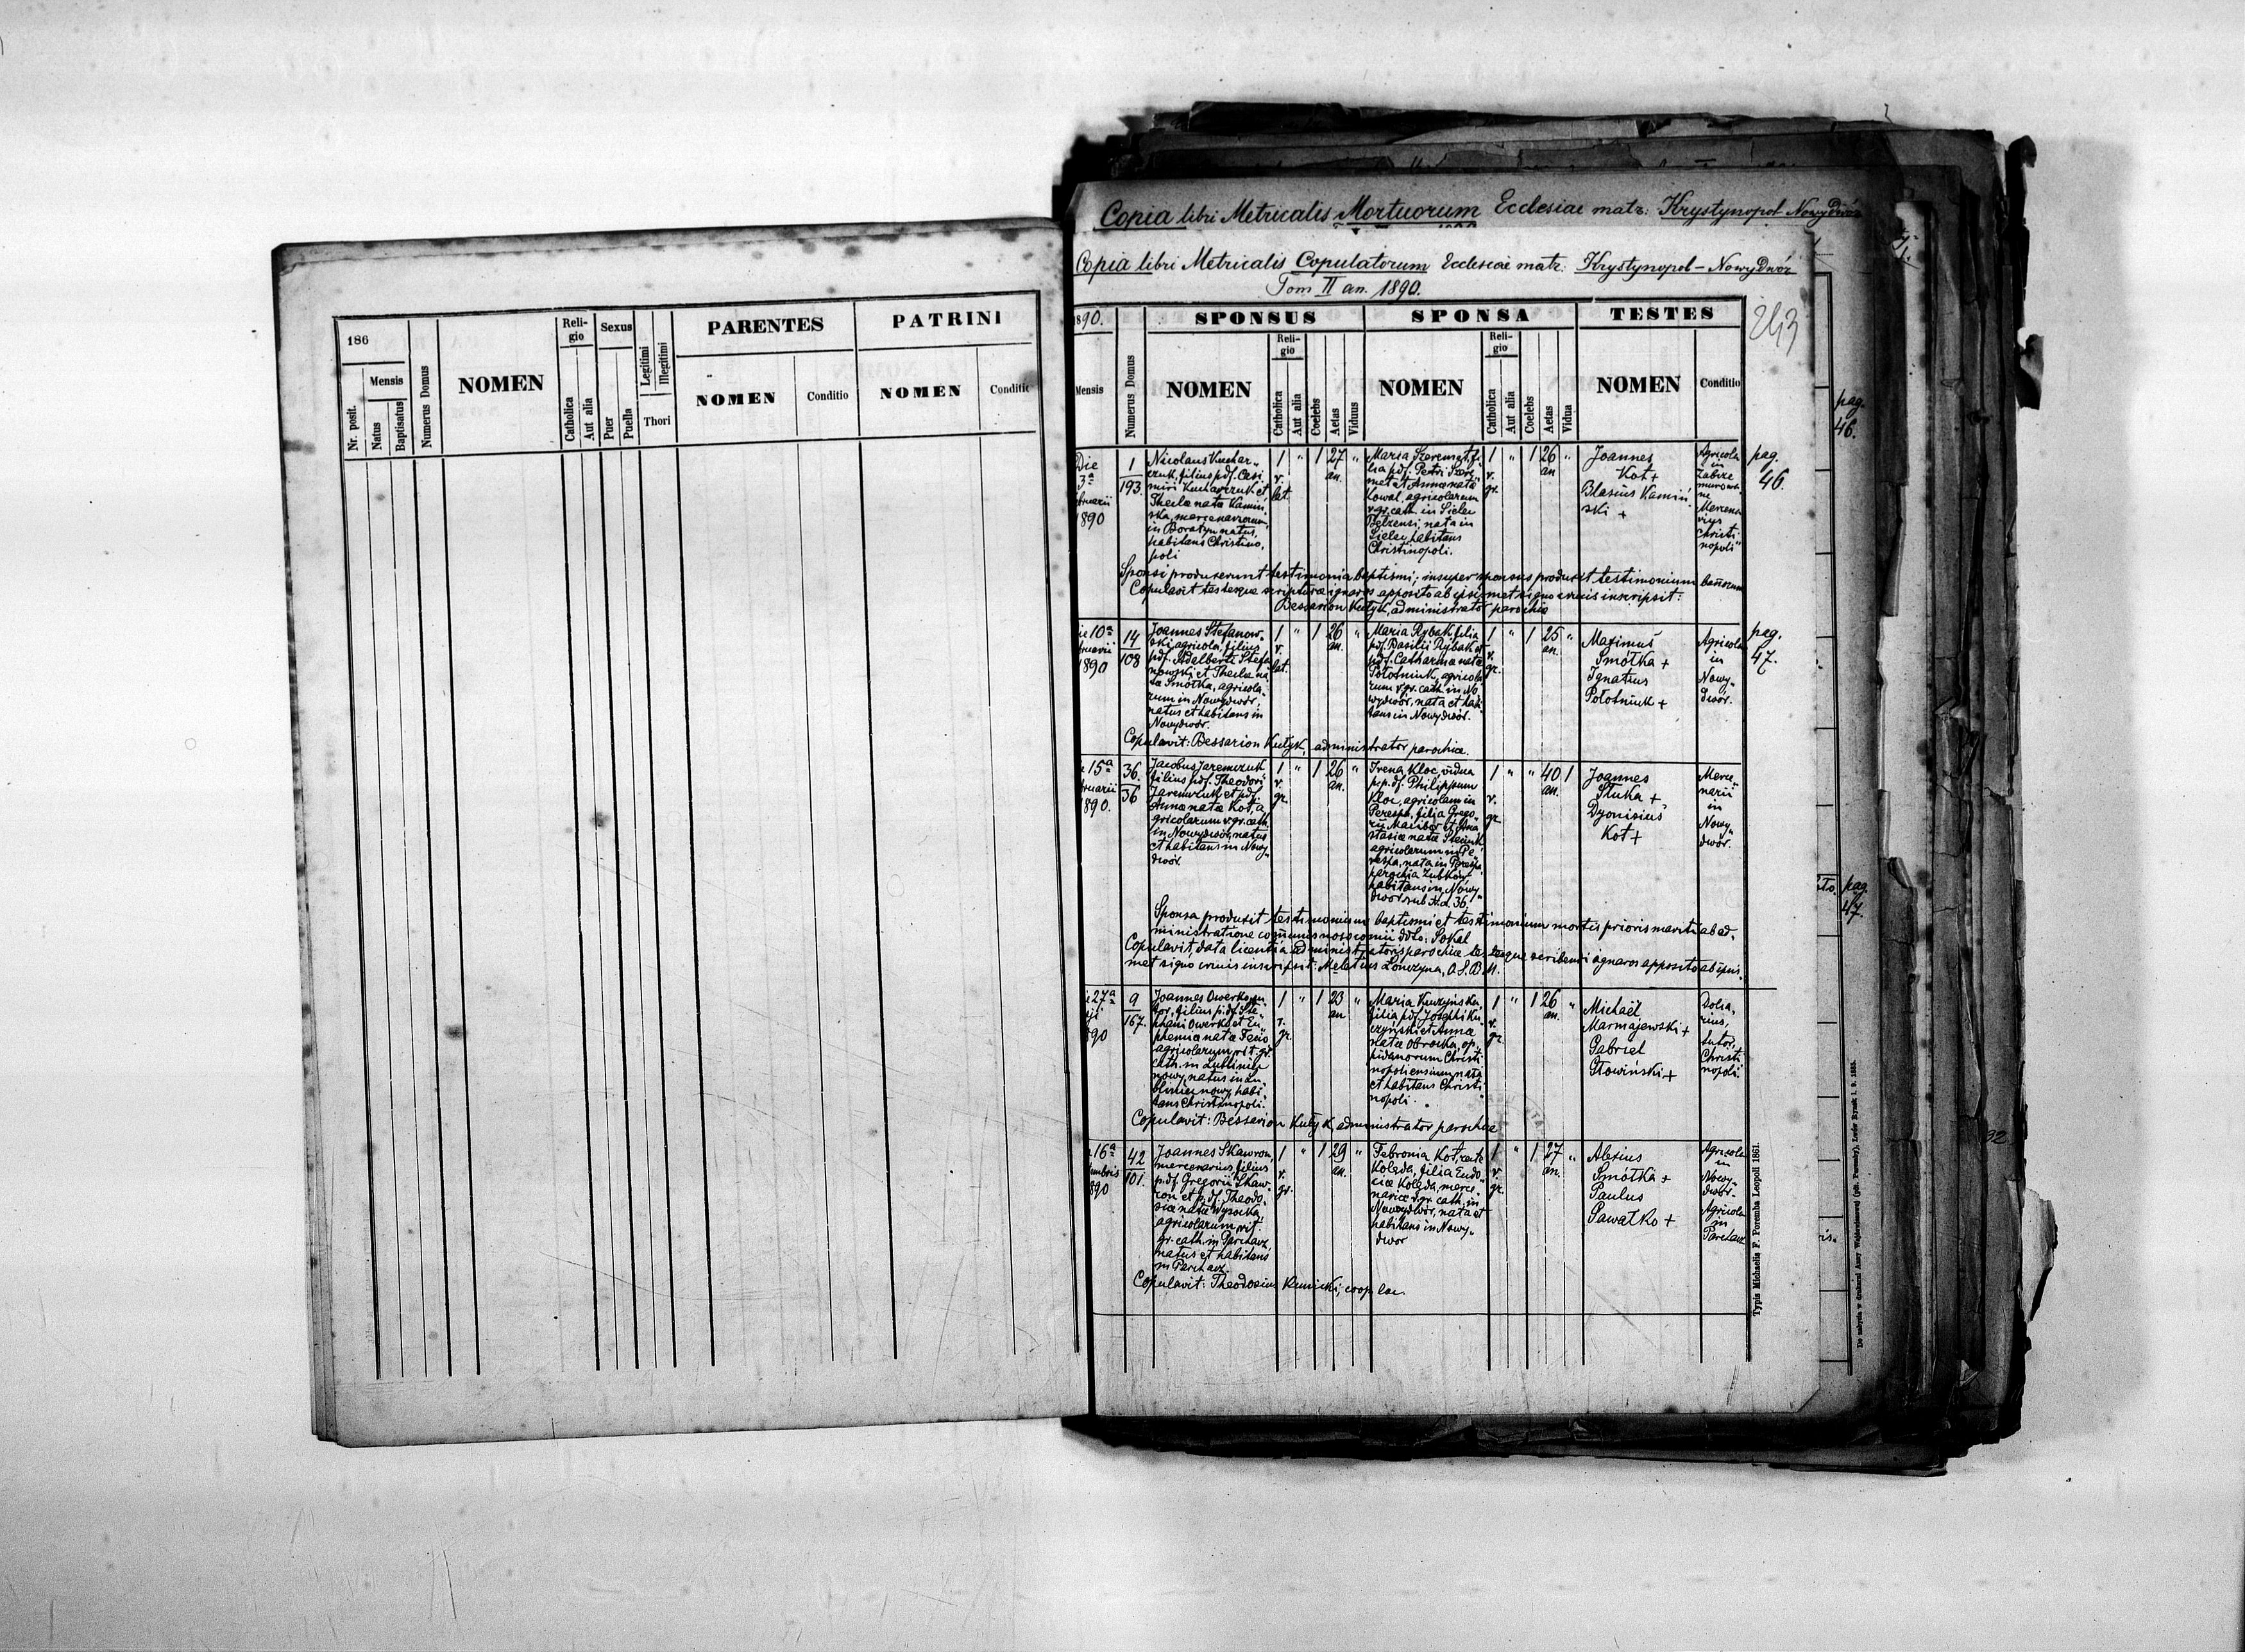 186
Reli-
gio
Sexus
PARENTES
PATRINI
Mensis
Nr. posit.
Natus
Baptisatus
Numerus Domus
NOMEN
Catholica
Aut alia
Puer
Puella
Legitimi
Illegitimi
Thori
NOMEN
Conditio
NOMEN
Conditio
Copia libri Metricalis Mortuorum Ecclesiae matr: Krystynopol Nowydwór
Copia libri Metricalis Copulatorum Ecclesiae matr: Krystynopol - Nowydwór
Tom II an. 1890.
1890.
SPONSUS
SPONSA
TESTES
243
Mensis
Numerus Domus
NOMEN
Reli-
gio
Catholica
Aut alia
Coelebs
Aetas
Viduus
NOMEN
Reli-
gio
Catholica
Aut alia
Coelebs
Aetas
Vidua
NOMEN
Conditio
Die
3a
1890
1
193.
Nicolaus Kuchar„
czuk, filius pdf. Casi
miri Kucharczuk et
Theclae nata Kamin
ska, mercenariorum
in Boratyn natus,
habitans Christino„
poli
1 " 1 27 "
r.
lat.
an.
Maria Szeremet, fi
lia pdf. Petri Szere
met et Annae nata
Kowal, agricolarum
r. gr. cath. in Sielec
Belzensi, nata in
Sielec, habitans
Christinopoli.
1 " 1 26 "
r.
gr.
an
Joannes
Kot +
Blasius Kamiń
ski +
Agricola
in
Zabcze
murowa
ne
Mercena
rius
Christi
nopoli
pag.
46
Sponsi produxerunt testimonia baptismi; insuper sponsus produxit testimonium bannorum
Copulavit testesque scripturae ignaros apposito ab ipsismet signo crucis inscripsit:
Bessarion Kutyk, administrator parochiae
10a
1890
14
108
Joannes Stefanow„
ski agricola, filius
pdf. Adelberti Stefa
nowski et Theclae na
ta Smótka, agricola„
rum in Nowydwór,
natus et habitans in
Nowydwór.
1 " 1 26 "
r.
lat.
an.
Maria Rybak, filia
pdf. Basilii Rybak et
pdf. Catharina nata
Połotniuk, agricola
rum r. gr. cath. in No
wydwór, nata et habi
tans in Nowydwór.
1 " 1 25 "
r.
gr.
an.
Maximus
Smótka +
Ignatius
Połotniuk +
Agricolae
in
Nowy„
dwór.
pag.
47.
Copulavit: Bessarion Kutyk, administrator parochiae.
15a
1890.
36.
36
Jacobus Jaremczuk
filius pdf. Theodori
Jaremczuk et pdf.
Annae nata Kot, a
gricolarum r. gr. cath.
in Nowydwór, natus
et habitans in Nowy„
dwór.
1 " 1 26 "
r.
gr.
an.
Irena Kloc, vidua
p. p. df. Philippum
Kloc, agricolam in
Perespa, filia Grego„
rii Macibor et Ana
stasiae nata
agricolarum in Pe
respa, nata in Perespa
parochia Zubków
habitans in Nowy
dwór sub N. d. 36.
1 " " 40 1
r.
gr.
an.
Joannes
Słuka +
Dyonisius
Kot +
Merce„
narii
in
Nowy„
dwór.
Sponsa produxit testimonium baptismi et testimonium mortis prioris mariti ab ad„
ministratione communis nosocomii ddto: Sokal
Copulavit, data licentia administratoris parochiae testesque scribendi ignaros apposito ab ipsis„
met signo crucis inscripsit: Meletius Łonczyna, O. S. B. M.
27a
1890
9
167.
Joannes Owerko,
filius p. df. Ste„
phani Owerko et Eu„
phemia nata
agricolarum rit. gr.
cath. in Lubliniec
nowy, natus in Lu„
bliniec nowy, habi„
tans Christinopoli.
1 " 1 23 "
r.
gr.
an
Maria Kuczyńska,
filia pdf. Josephi Ku
czyński et Anna
nata Obrocka, op„
pidanorum Christi
nopoliensium, nata
et habitans Christi„
nopoli.
1 " 1 26 "
r.
gr.
an.
Michaël
Marmajewski +
Gabriel
Głowiński +
Dolia„
rius,
Sutor,
Christi
nopoli.
Copulavit: Bessarion Kutyk, administrator parochiae
16a
1890
42
101.
Joannes Skawron,
mercenarius, filius
p. df. Gregorii Skaw„
ron et p. df. Theodo„
siae nata Wysocka,
agricolarum rit.
gr. cath. in Parchacz
natus et habitans
in Parchacz.
1 " 1 29 "
r.
gr.
an.
Febronia Kot, recte
Kolęda, filia Eudo„
ciae Kolęda, merce„
nariae r. gr. cath. in
Nowydwór, nata et
habitans in Nowy„
dwór
1 " 1 27 "
r.
gr.
an.
Alexius
Smótka +
Paulus
Pawałko +
Agricola
in
Nowy„
dwór.
Agricola
in
Parchacz
Copulavit: Theodosius Kunicki, coop. loc.
Typis Michaelis F. Poremba Leopoli 1861.
pag.
46.
pag.
47.